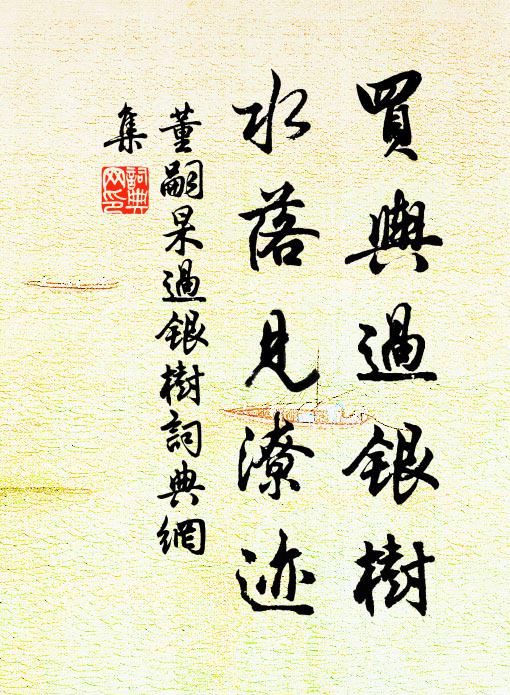 買輿過銀樹
水落見潦迹
董嗣杲過銀樹詞典網
集
詞典
网印